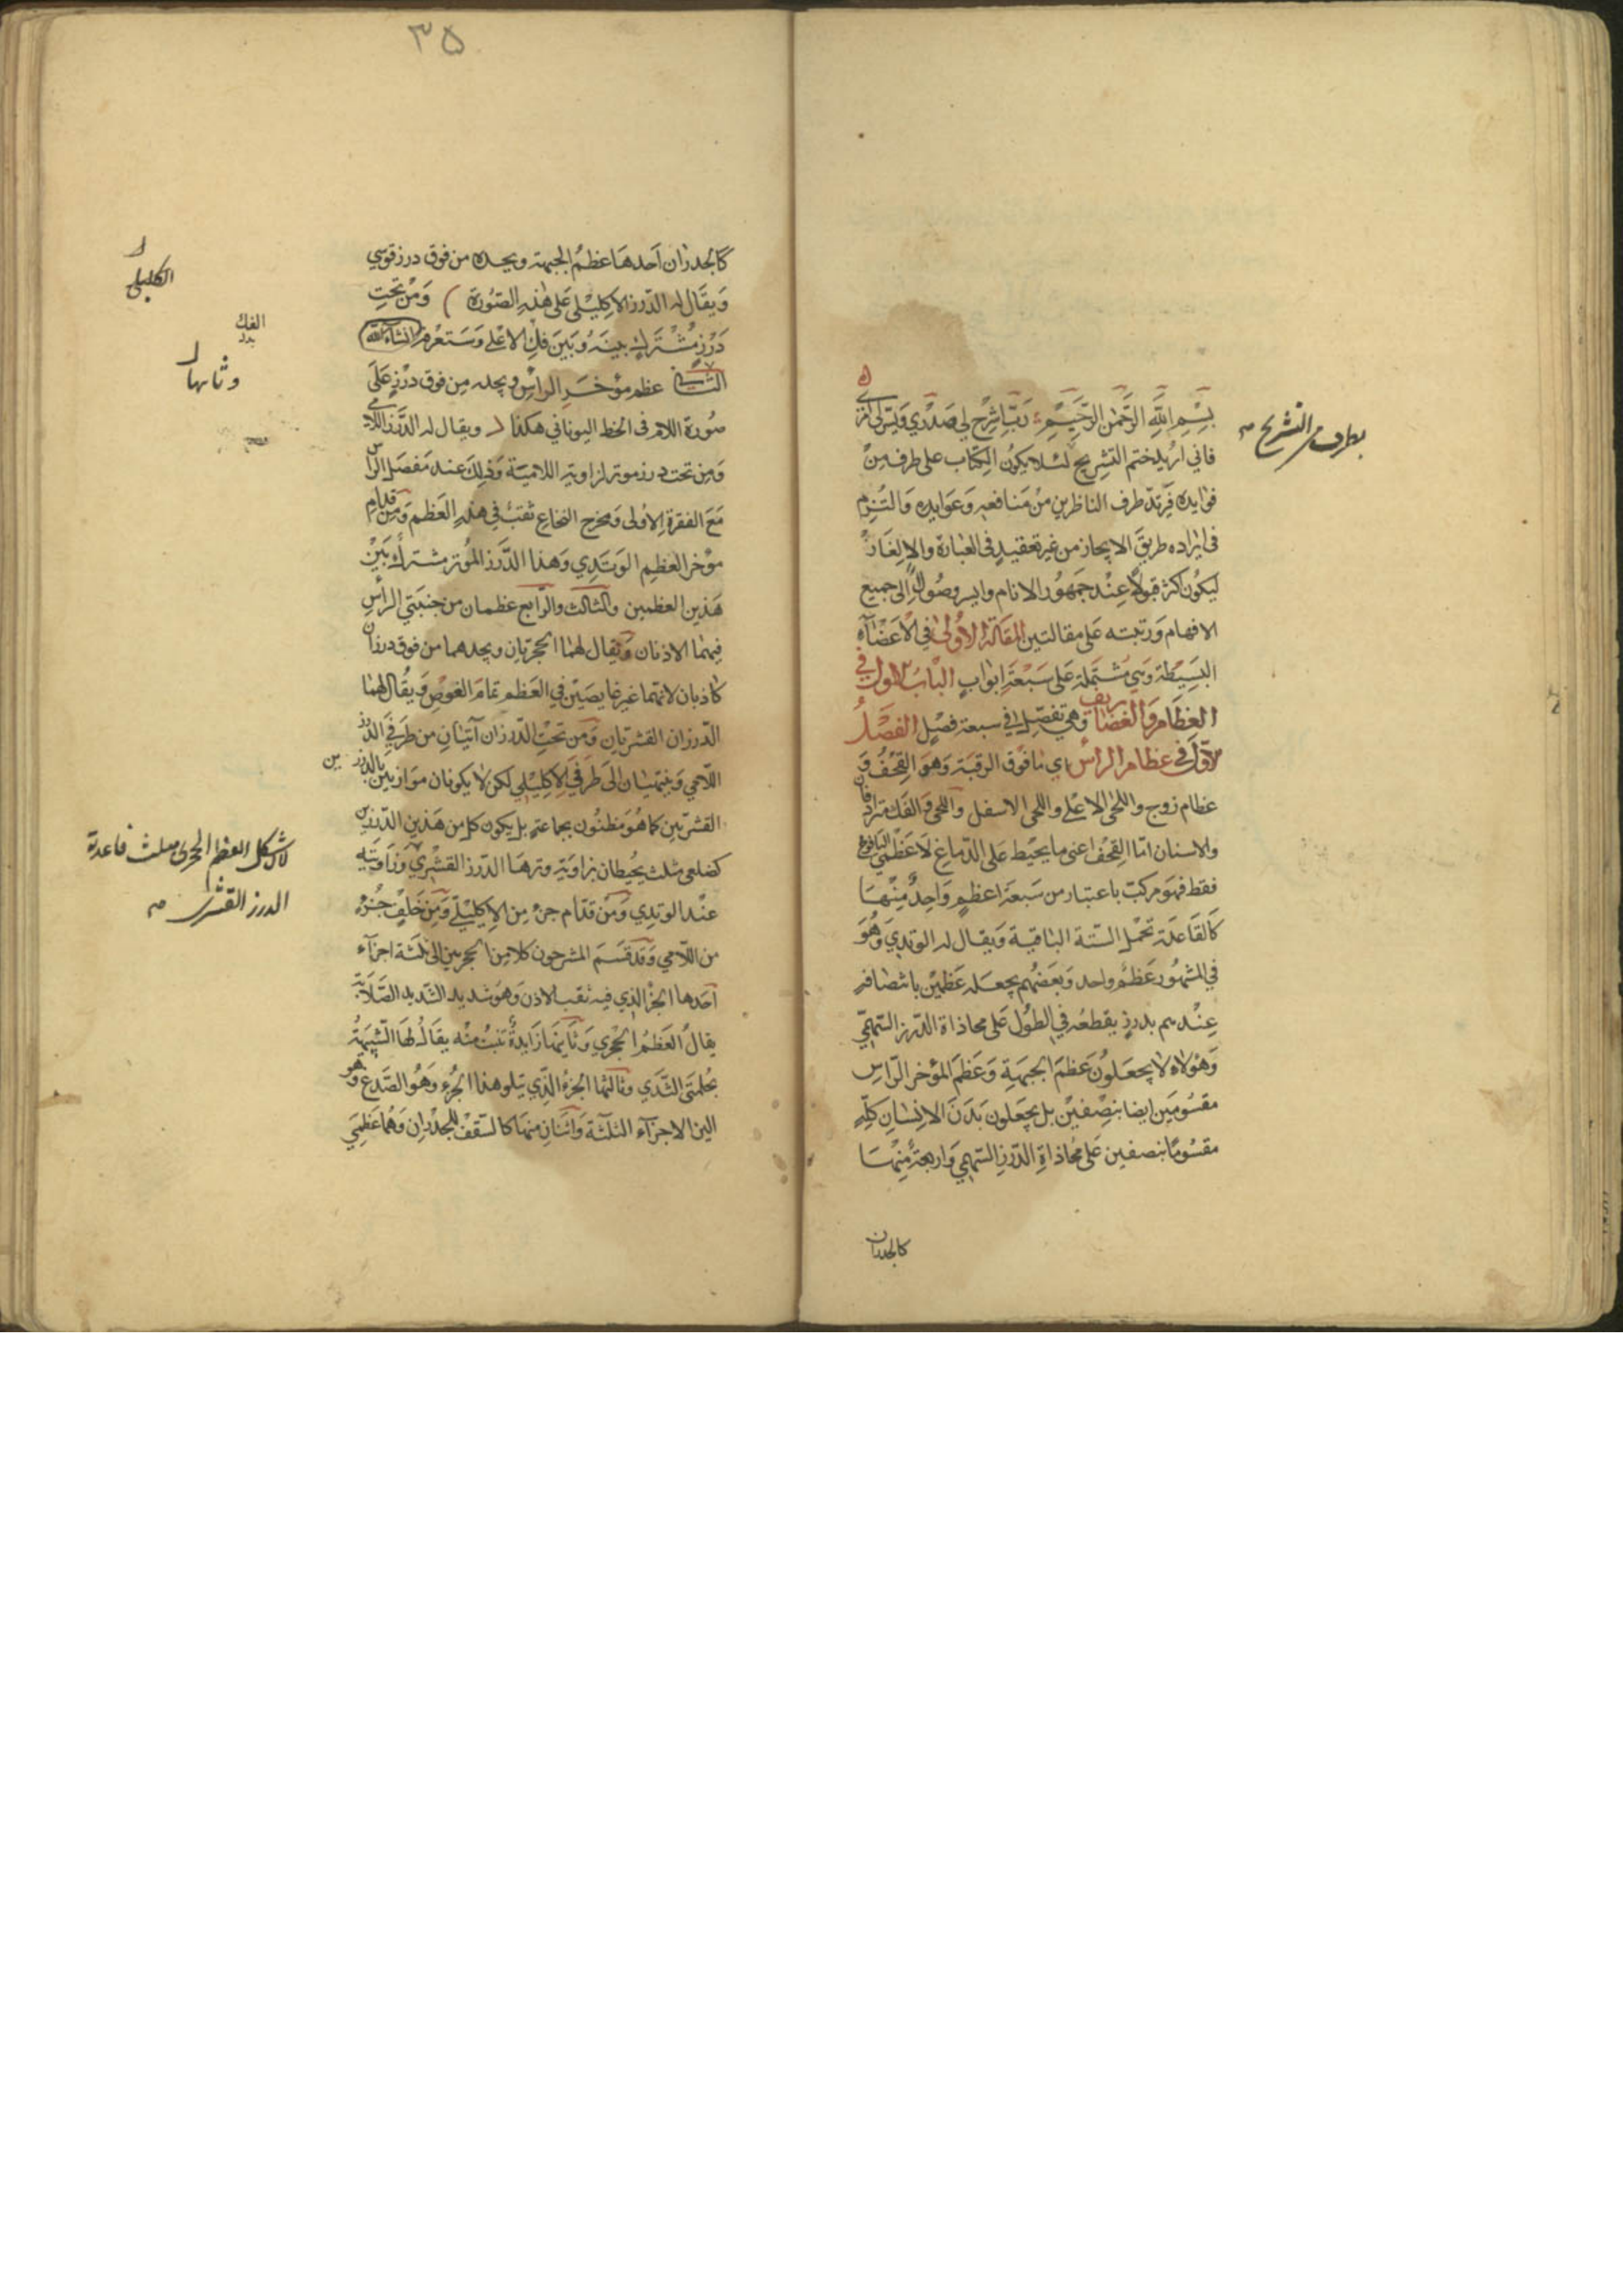 بِسْمِ اللهِ الرَّحْمٰنِ الرَّحِيْمِ رَبِّ اشْرَحْ لِي صَدْرِي وَيَسِّر لِي
فاني اريد ختم التشريح لئلا يكون الكتاب على طرف من
فوايده فرتد طرف الناظرين من منافعه وعوايده والتزم
فى ايراده طريق الايجاز من غير تعقيد فى العبارة والالغاز
ليكون اكثر قبولا عند جمهور الانام وايسر وصولا الى جميع
الافهام ورتبته على مقالتين المقالة الاولى في الاعضاء
البسيطة وهي مشتملة على سبعة ابواب الباب الاول في
العظام والغضاريف وهي تفصل في سبعة فصل الفصل
الاول في عظام الراس اي ما فوق الرقبة وهو القحف و
عظام زوج واللحى الاعلى واللحى الاسفل واللحى والفك مترادفان
والاسنان اما القحف اعنى ما يحيط على الدماغ لا عظمي اليافوخ
فقط فهو مركب باعتبار من سبعة اعظم واحد منها
كالقاعدة تحمل الستة الباقية ويقال له الوتدي وهو
في المشهور عظم واحد وبعضهم يجعله عظمين
عندهم بدرز يقطعه في الطول على محاذاة الدرز السهمي
وهؤلاء لا يجعلون عظم الجبهة وعظم المؤخر الراس
مقسومين ايضا بنصفين بل يجعلون بدن الانسان كله
مقسوما بنصفين على محاذاة الدرز السهمي واربعة منها
كالجدران
التشريح
٣٥
كالجدران احدها عظم الجبهة ويحده من فوق درز قوسي
ويقال له الدرز الاكليلي على هذه الصورة ) ومن تحت
درز مشترك بينه وبين فك الاعلى وستعرفه انشاء الله
الثاني عظم مؤخر الراس ويحده من فوق درز على
صورة اللام فى الخط اليوناني هكذا ويقال له الدرز اللامي
ومن تحت درز موتر لزاوية اللامية وذلك عند مفصل الراس
مع الفقرة الاولى ومخرج النخاع ثقب في هذه العظم ومن قدام
مؤخر العظم الوتدي وهذا الدرز الموتر مشترك بين
هذين العظمين والثالث والرابع عظمان من جنبتي الراس
فيهما الاذنان ويقال لهما الحجريان ويحدهما من فوق درزان
كاذبان لانهما غير غايصين في العظم تمام الغوص ويقال لهما
الدرزان القشريان ومن تحت الدرزان آتيان من طرفي الدرز
اللامي وينتهيان الى طرفي الاكليلي لكن لا يكونان موازيين بالدرزين
القشريين كما هو مظنون بجماعة بل يكون كل من هذين الدرزين
كضلعي مثلث يحيطان بزاوية وترها الدرز القشري وزاويته
عند الوتدي ومن قدام جزء من الاكليلي ومن خلف جزء
من اللامي وقد قسم المشرحون كلا من الحجريين الى ثلثة اجزاء
احدها الجزء الذي فيه ثقب الاذن وهو شديد الشديد الصلابة
يقال العظم الحجري وثانيهما زايدة تنبت منه يقال لها الشبيهة
بحلمتي الثدي وثالثها الجزء الذي يتلو هذا الجزء وهو الصدغ وهو
الين الاجزاء الثلثة واثنان منها كالسقف للجدران وهما عظمي
الاكليلي
الفك
وثانيها
لان شكل العظم الحجري مثلث قاعدته
الدرز القشري